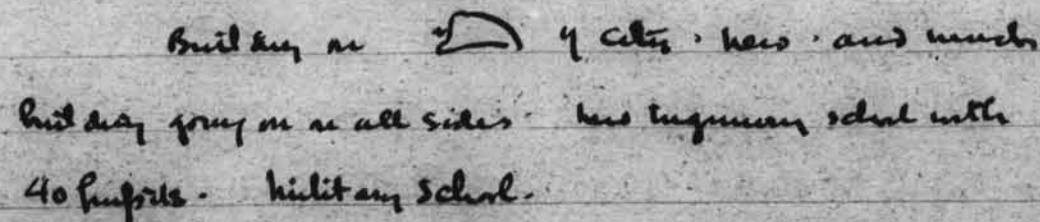 Building on of city. new. and much
building going on on all sides. new Engineering school with
40 pupils. Military School.